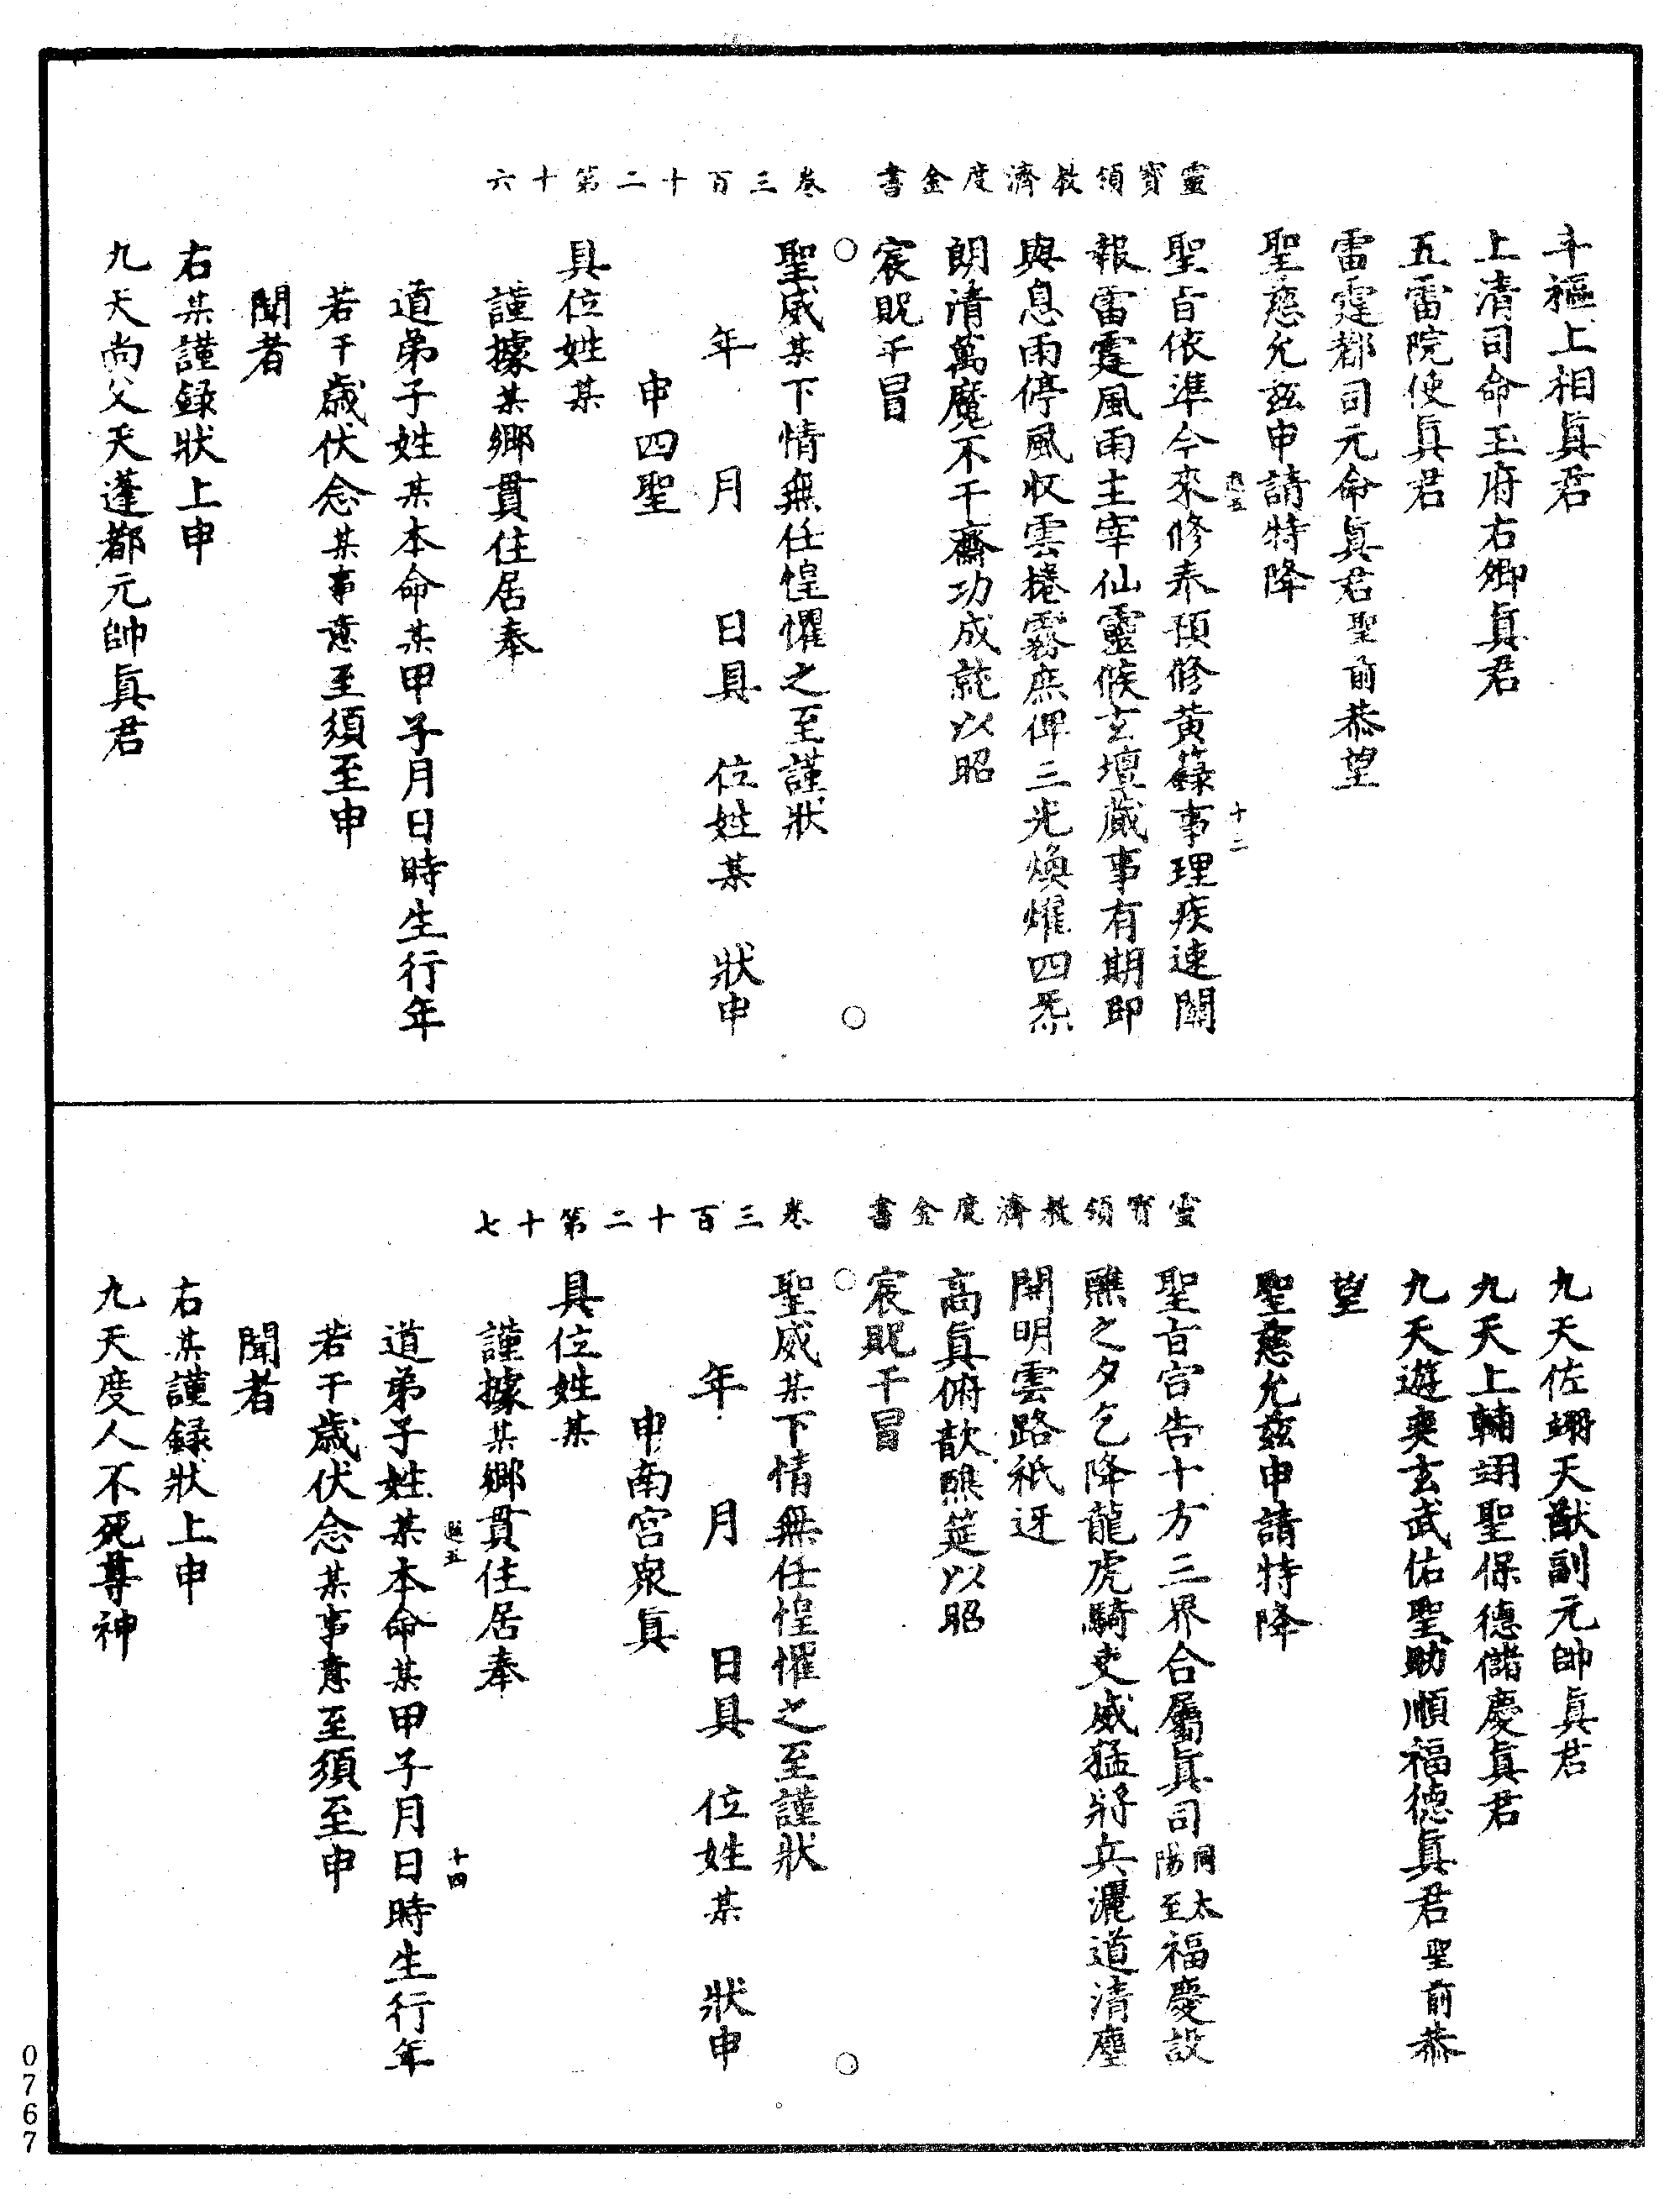 靈寶領教濟度金書　卷三百十二第十六
斗樞上相眞君
上清司命玉府右卿眞君
五雷院使眞君
雷霆都司元命眞君聖前恭望
聖慈允兹申請特降
聖旨依準今來修奉預修黃籙事理疾速關
報雷霆風雨主宰仙靈候玄壇蕆事有期即
與息雨停風收雲捲霧庶俾三光煥燿四炁
朗清萬魔不干齋功成就以昭
宸貺干冒
聖威某下情無任惶懼之至謹狀
年　月　日具　位姓某　狀申
申四聖
具位姓某
謹據某鄉貫住居奉
道弟子姓某本命某甲子月日時生行年
若干歲伏念某事意至須至申
聞者
右某謹錄狀上申
九天尚父天蓬都元帥眞君
十二
靈寶領教濟度金書　卷三百十二第十七
九天佐翊天猷副元帥眞君
九天上輔翊聖保德儲慶眞君
九天遊奕玄武佑聖助順福德眞君聖前恭
望
聖慈允兹申請特降
聖旨宮告十方三界合屬眞司同太陽至福慶設
醮之夕乞降龍虎騎吏威猛將兵灑道清塵
開明雲路祇迓
高眞俯歆醮筵以昭
宸貺干冒
聖威某下情無任惶懼之至謹狀
年　月　日具　位姓某　狀申
申南宮衆眞
具位姓某
謹據某鄉貫住居奉
道弟子姓某本命某甲子月日時生行年
若干歲伏念某事意至須至申
聞者
右某謹錄狀上申
九天度人不死尊神
十四
0767